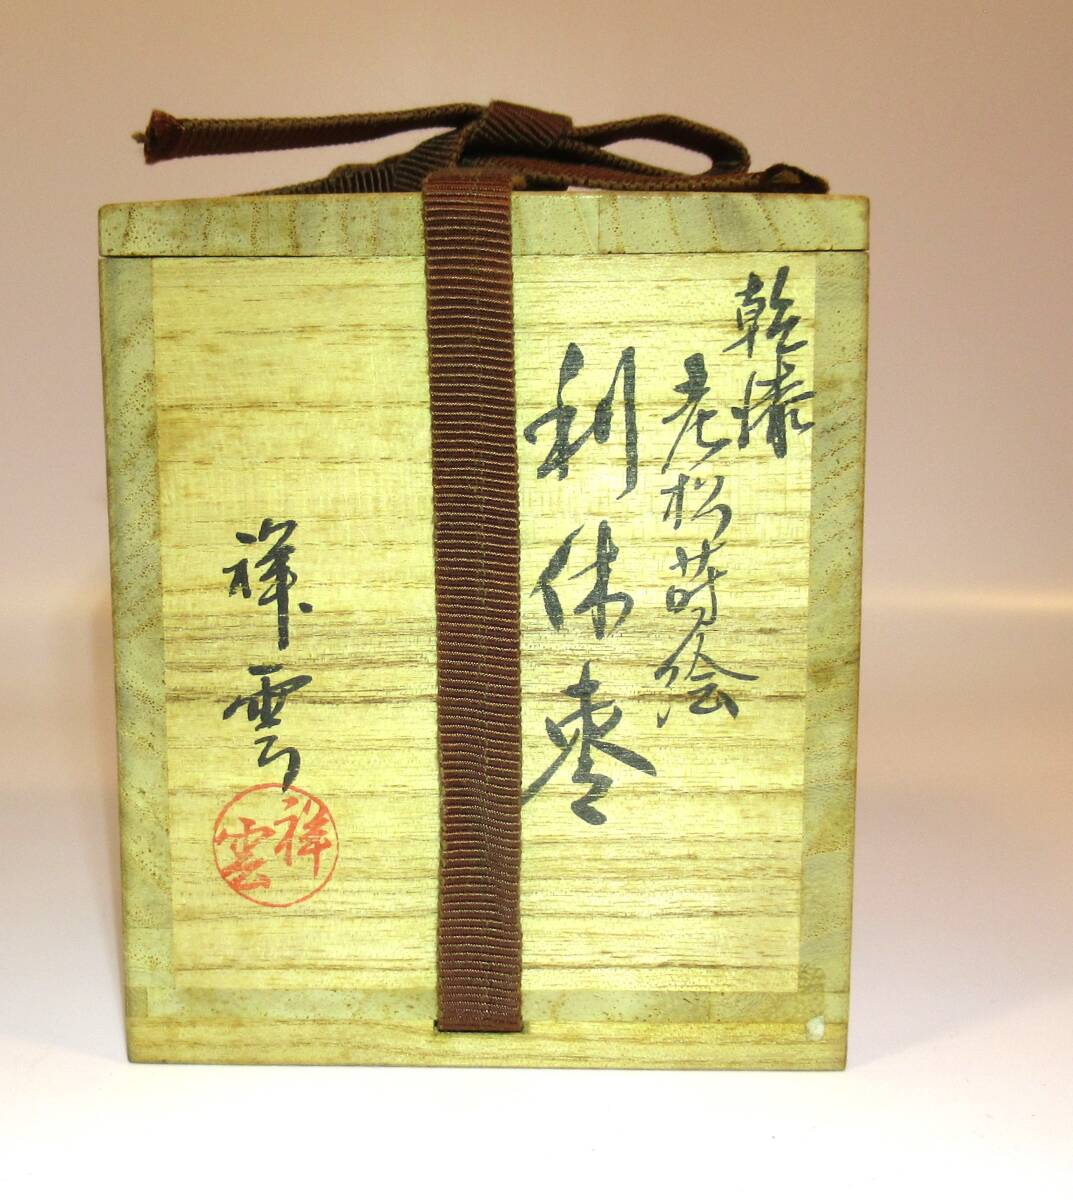 乾漆
老松蒔絵
利休棗
祥雲
祥雲